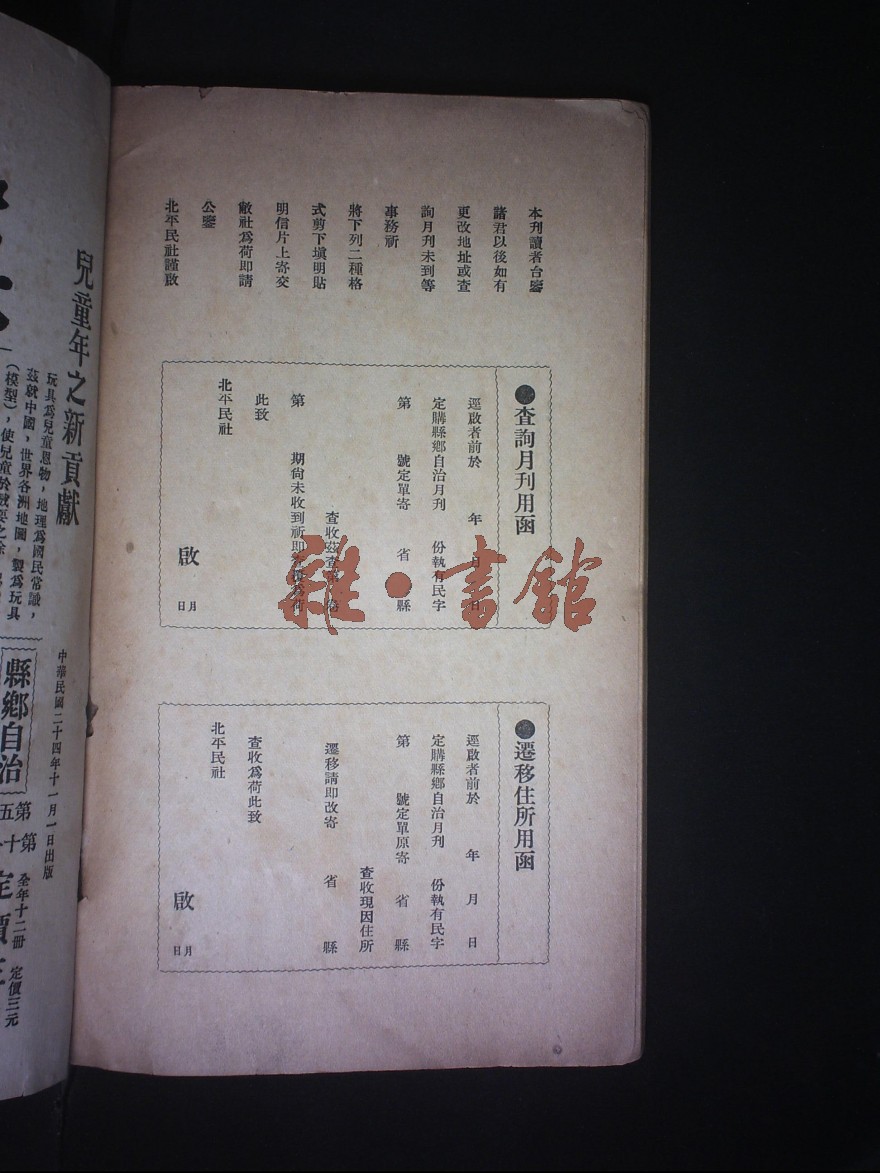 本刊讀者台鑒
諸君以後如有
更改地址或查
詢月刊未到等
事務祈
將下列二種格
式剪下塡明貼
明信片上寄交
敝社爲荷即請
公鑒
北平民社謹啟
●查詢月刊用函
逕啟者前於 年 月 日
定購縣鄉自治月刊 份執有民字
第 號定單寄 省 縣
查收茲查第
第 期尚未收到祈即 爲荷
此致
北平民社
啟
月 日
●遷移住所用函
逕啟者前於 年 月 日
定購縣鄉自治月刊 份執有民字
第 號定單原寄 省 縣
查收現因住所
遷移請即改寄 省 縣
查收爲荷此致
北平民社
啟
月 日
兒童年之新貢獻
玩具爲兒童恩物，地理爲國民常識，
茲就中國，世界各洲地圖，製爲玩具
（模型），使兒童於
中華民國二十四年十一月一日出版
縣鄉自治
第五
第十
全年十二冊 定價三元
定價
雜·書館